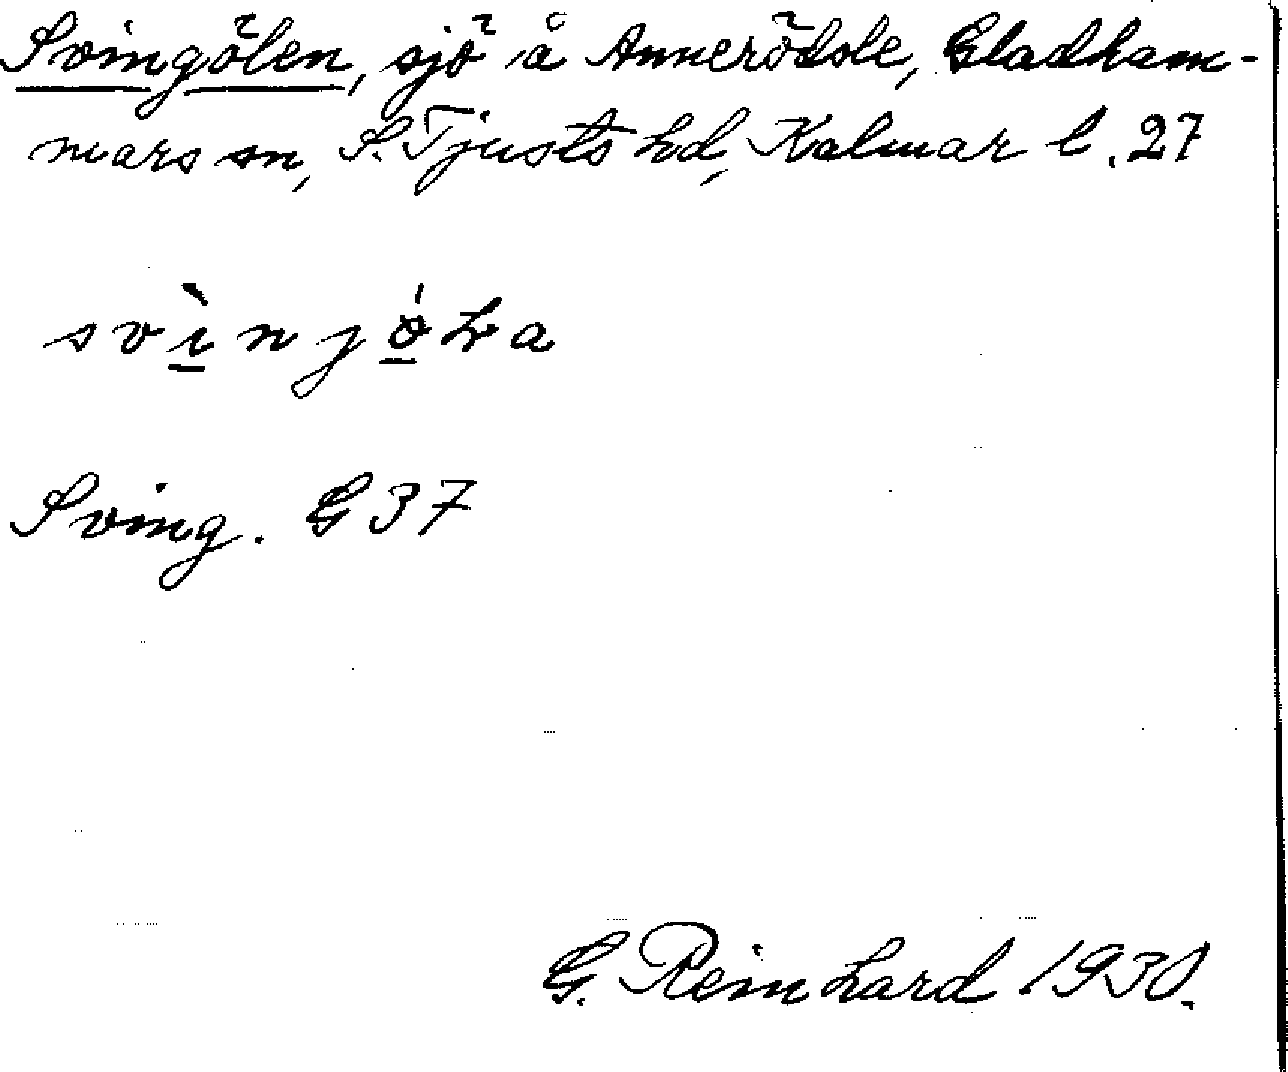 Svingölen, sjö å Anneröd sle, Gladham-
mars sn, S. Tjusts hd, Kalmar l. 27
svìnjǿla
Sving. G 37
G. Reinhard 1930.